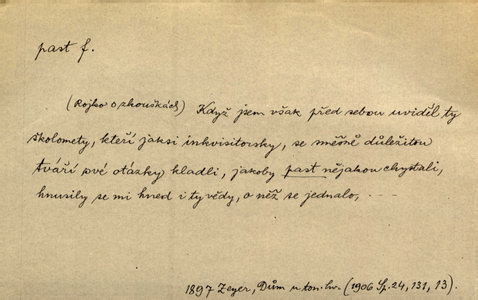 past f.
(Rojko o zkouškách) Když jsem však před sebou uviděl ty
školomety, kteří jaksi inkvisitorsky, se směšně důležitou
tváří své otázky kladli, jakoby past nějakou chystali,
hnusily se mi hned i ty vědy, o něž se jednalo, ...
1897 Zeyer, Dům u ton. hv. (1906 Sp. 24, 131, 13).